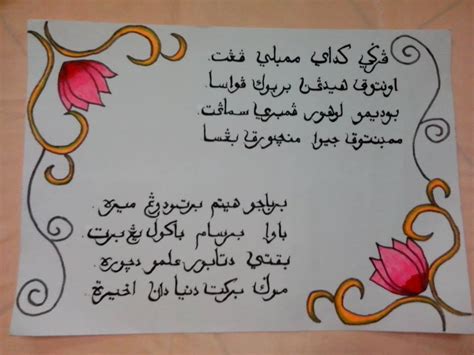 ڤرݢي کداي ممبلي ڤڠت.
اونتوق هيدڠن بربوک ڤواسا.
بوديمو لوهور ڤمبري سماڠت.
ممبنتوق جيوا بڠسا
برباجو هيتم برتودوڠ ميره.
باوا برسام باکول يڠ برت.
بقتي دتابور علمو دچوره.
موݢ برکت دنيا دان اخيرة.